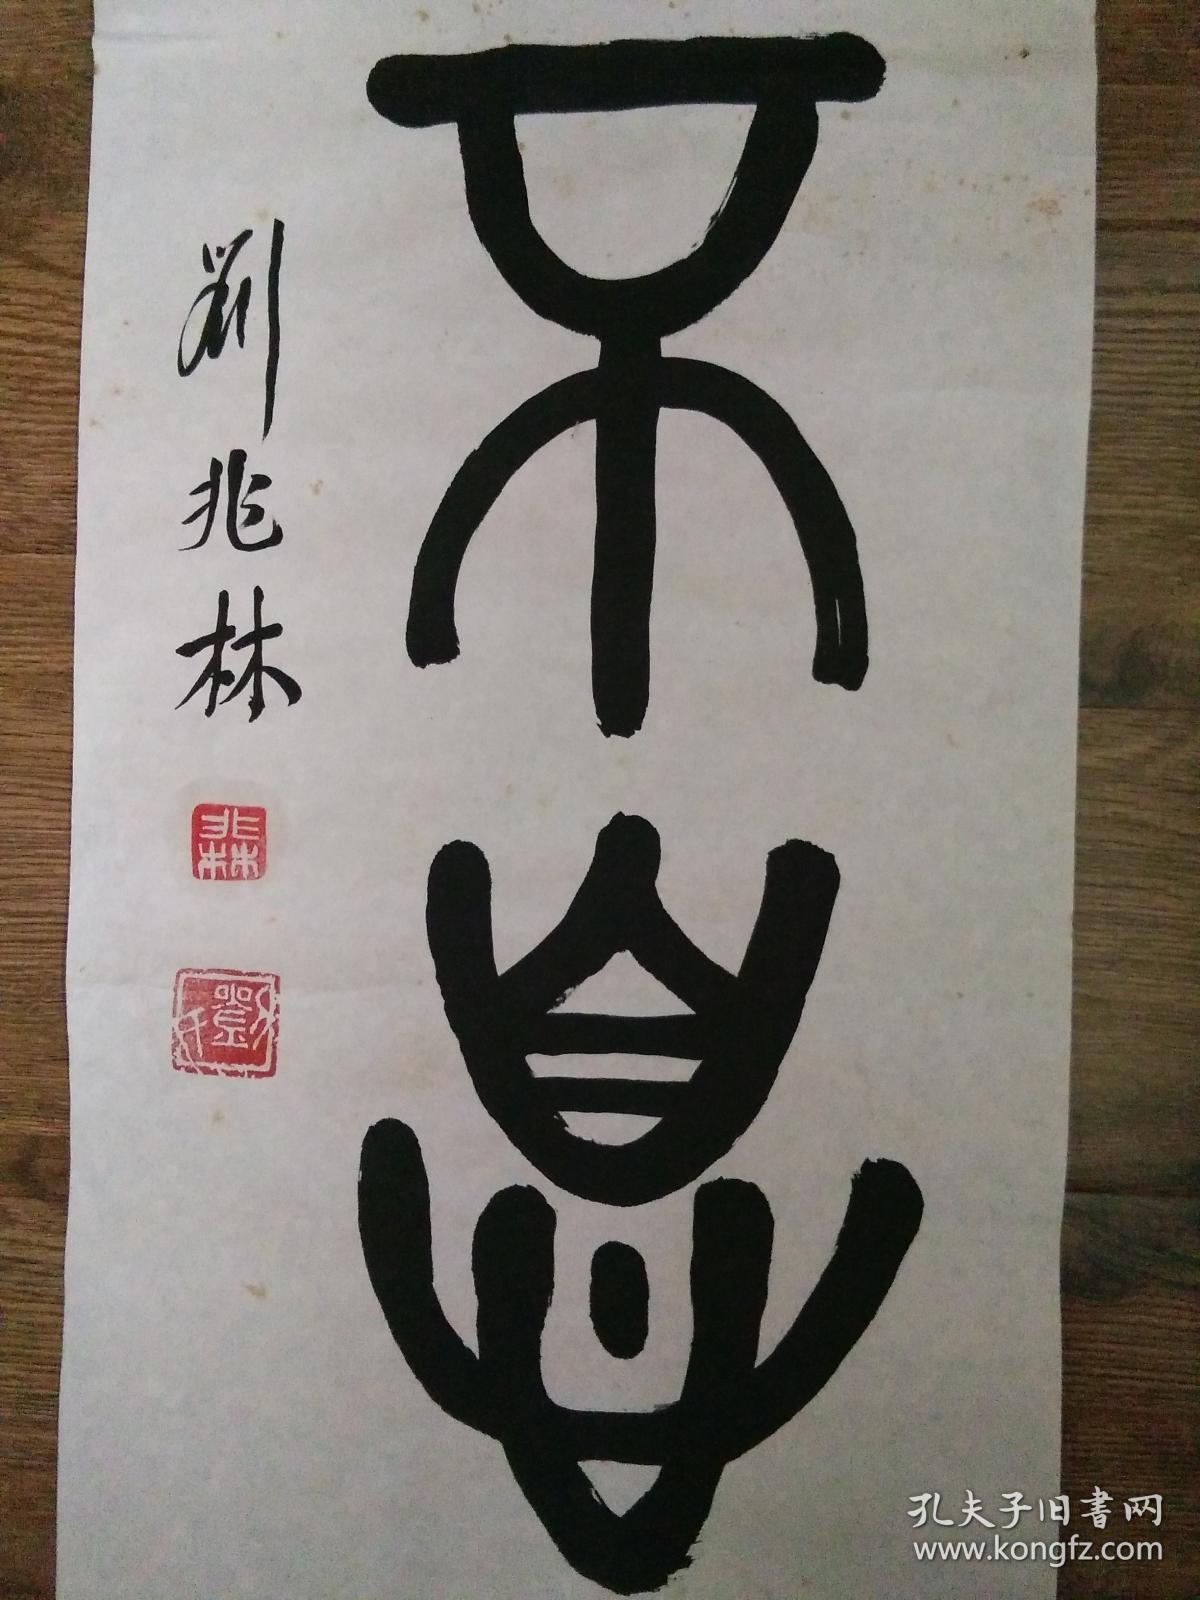 不息
劉兆林
兆林
孔夫子旧書网
www.kongfz.com